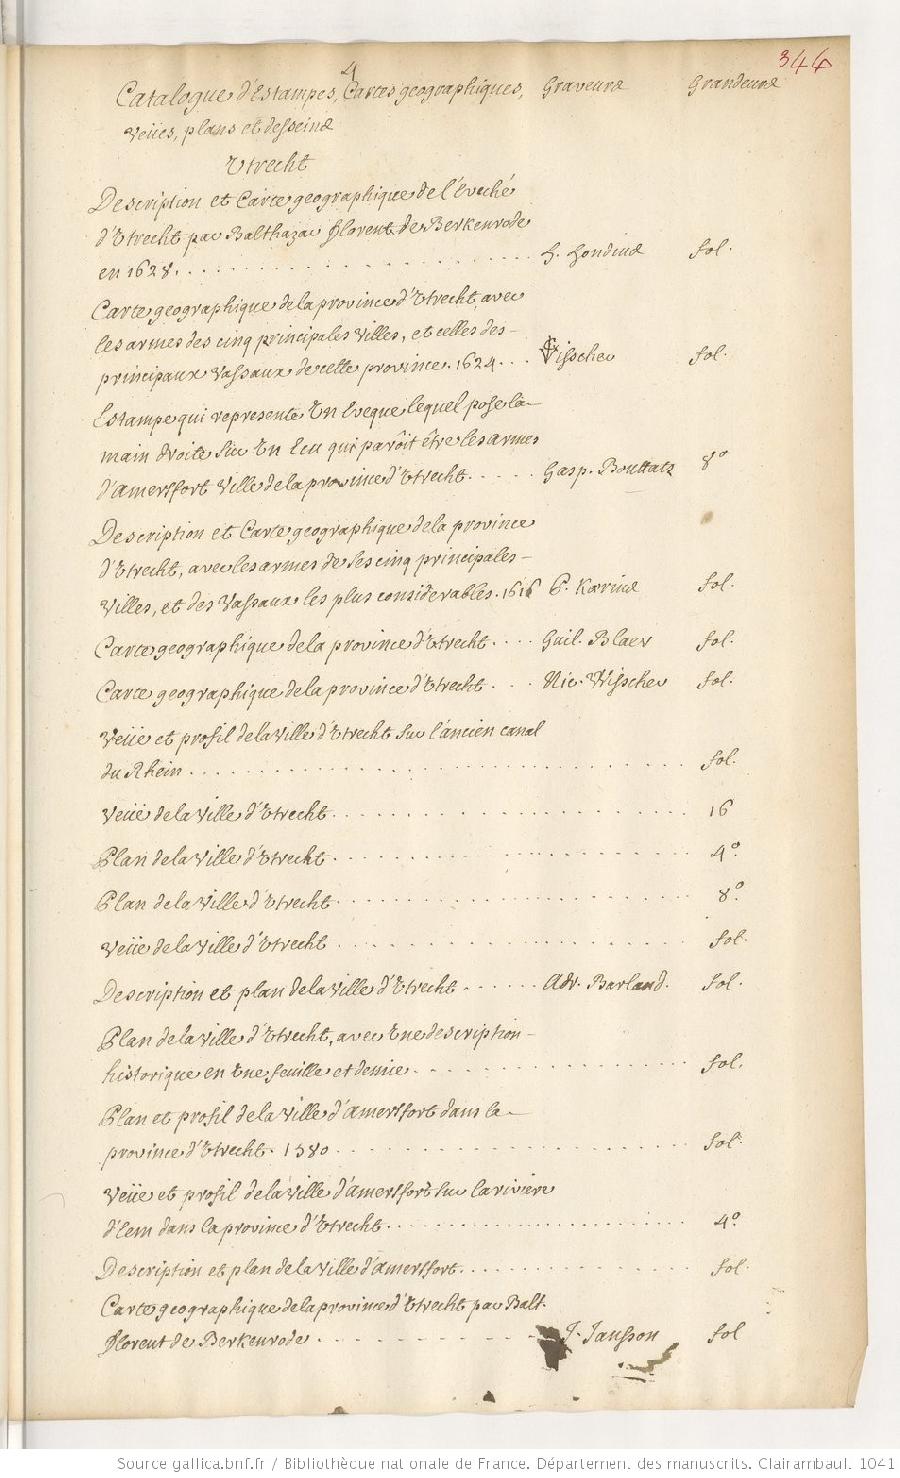 344
4
Catalogue d'Estampes, Cartes geographiques, Graveurs Grandeurs
Veües, plans et desseins
Utrecht
Description et Carte geographique de l'Eveché
d'Utrecht par Balthazar Florent de Berkenrode
en 1628. H. Hondius fol.
Carte geographique de la province d'Utrecht avec
les armes des cinq principales Villes, et celles des
principaux Vassaux de cette province. 1624... Visscher fol.
Estampe qui represente Un Eveque lequel pose la
main droite sur Un Ecu qui paroît être les armes
d'Amersfort Ville de la province d'Utrecht. Gasp. Bouttats 8°
Description et Carte geographique de la province
d'Utrecht, avec les armes de ses cinq principales
Villes, et des Vassaux les plus considerables. 1616 P. Kœrius fol.
Carte geographique de la province d'Utrecht.... Guil. Blaev fol.
Carte geographique de la province d'Utrecht... Nic. Visscher fol.
Veüe et profil de la Ville d'Utrecht sur l'ancien canal
du Rhein. fol.
Veüe de la Ville d'Utrecht. 16
Plan de la Ville d'Utrecht. 4°.
Plan de la Ville d'Utrecht 8°.
Veüe de la Ville d'Utrecht fol.
Description et plan de la Ville d'Utrecht Adr. Barland. fol.
Plan de la Ville d'Utrecht, avec Une description
historique en Une feuille et demie. fol.
Plan et profil de la Ville d'Amersfort dans la
province d'Utrecht. 1580. fol.
Veüe et profil de la Ville d'Amersfort sur la riviere
d'Eem dans la province d'Utrecht. 4°.
Description et plan de la Ville d'Amersfort. fol.
Carte geographique de la province d'Utrecht par Balt.
Florent de Berkenrode. J. Jansson fol
Source gallica.bnf.fr / Bibliothèque nationale de France. Département des manuscrits. Clairambault 1041